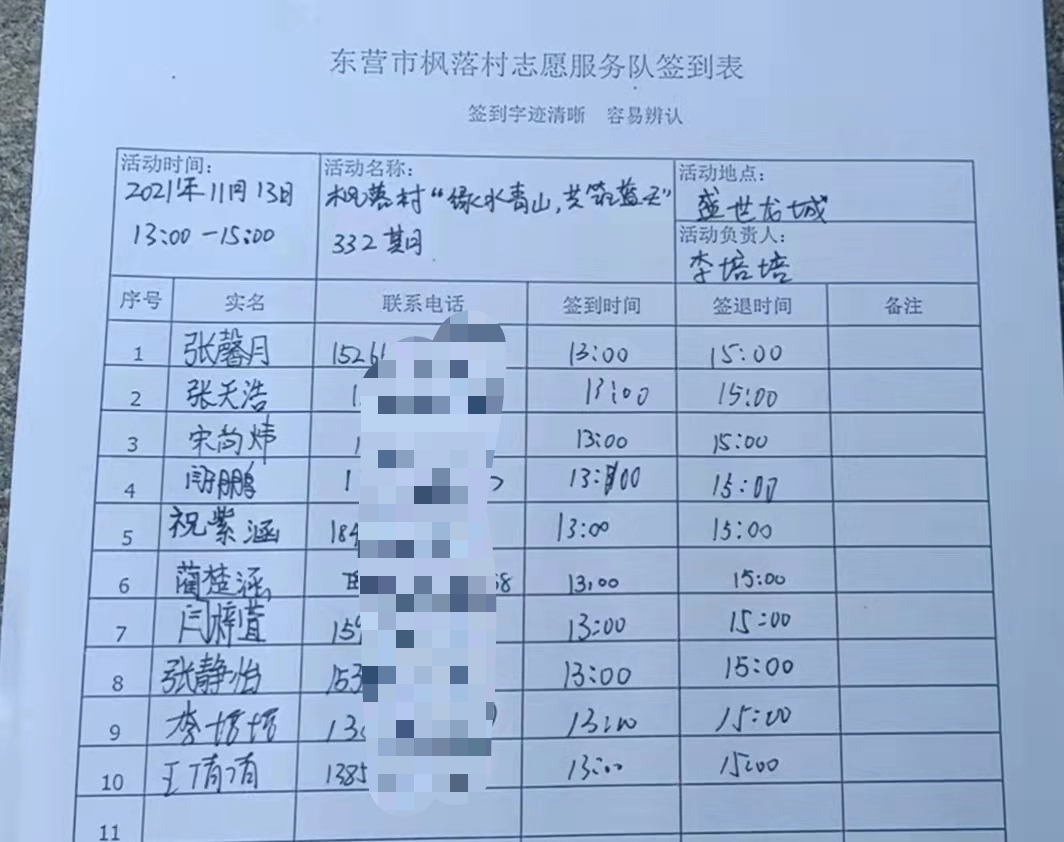 东营市枫落村志愿服务队签到表
签到字迹清晰 容易辨认
活动时间: 活动名称: 活动地点:
2021年11月13日 枫落村“绿水青山,共筑蓝天” 盛世龙城
13:00-15:00 332期 活动负责人:
李培培
序号 实名 联系电话 签到时间 签退时间 备注
1 张馨月 1526 13:00 15:00
2 张天浩 1 13:00 15:00
3 宋尚炜 1 13:00 15:00
4 闫鹏 1 13:00 15:00
5 祝紫涵 184 13:00 15:00
6 蔺楚涵 58 13:00 15:00
7 闫梓萱 159 13:00 15:00
8 张静怡 153 13:00 15:00
9 李培培 13 13:00 15:00
10 王 1385 13:00 15:00
11